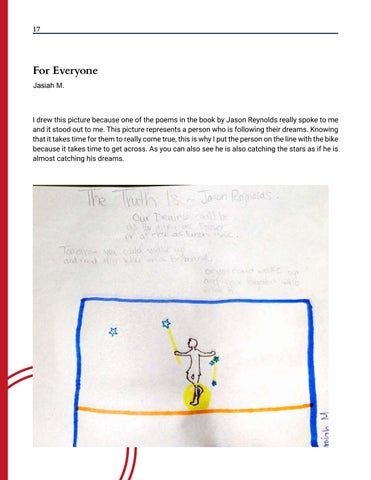 17
For Everyone
Jasiah M.
I drew this picture because one of the poems in the book by Jason Reynolds really spoke to me
and it stood out to me. This picture represents a person who is following their dreams. Knowing
that it takes time for them to really come true, this is why I put the person on the line with the bike
because it takes time to get across. As you can also see he is also catching the stars as if he is
almost catching his dreams.
The Truth Is - Jason Reynolds.
Our Dreams could be
as far away as
or as close as lunch
Tomorrow you could wake up
and read this
or you could wake up
and
M